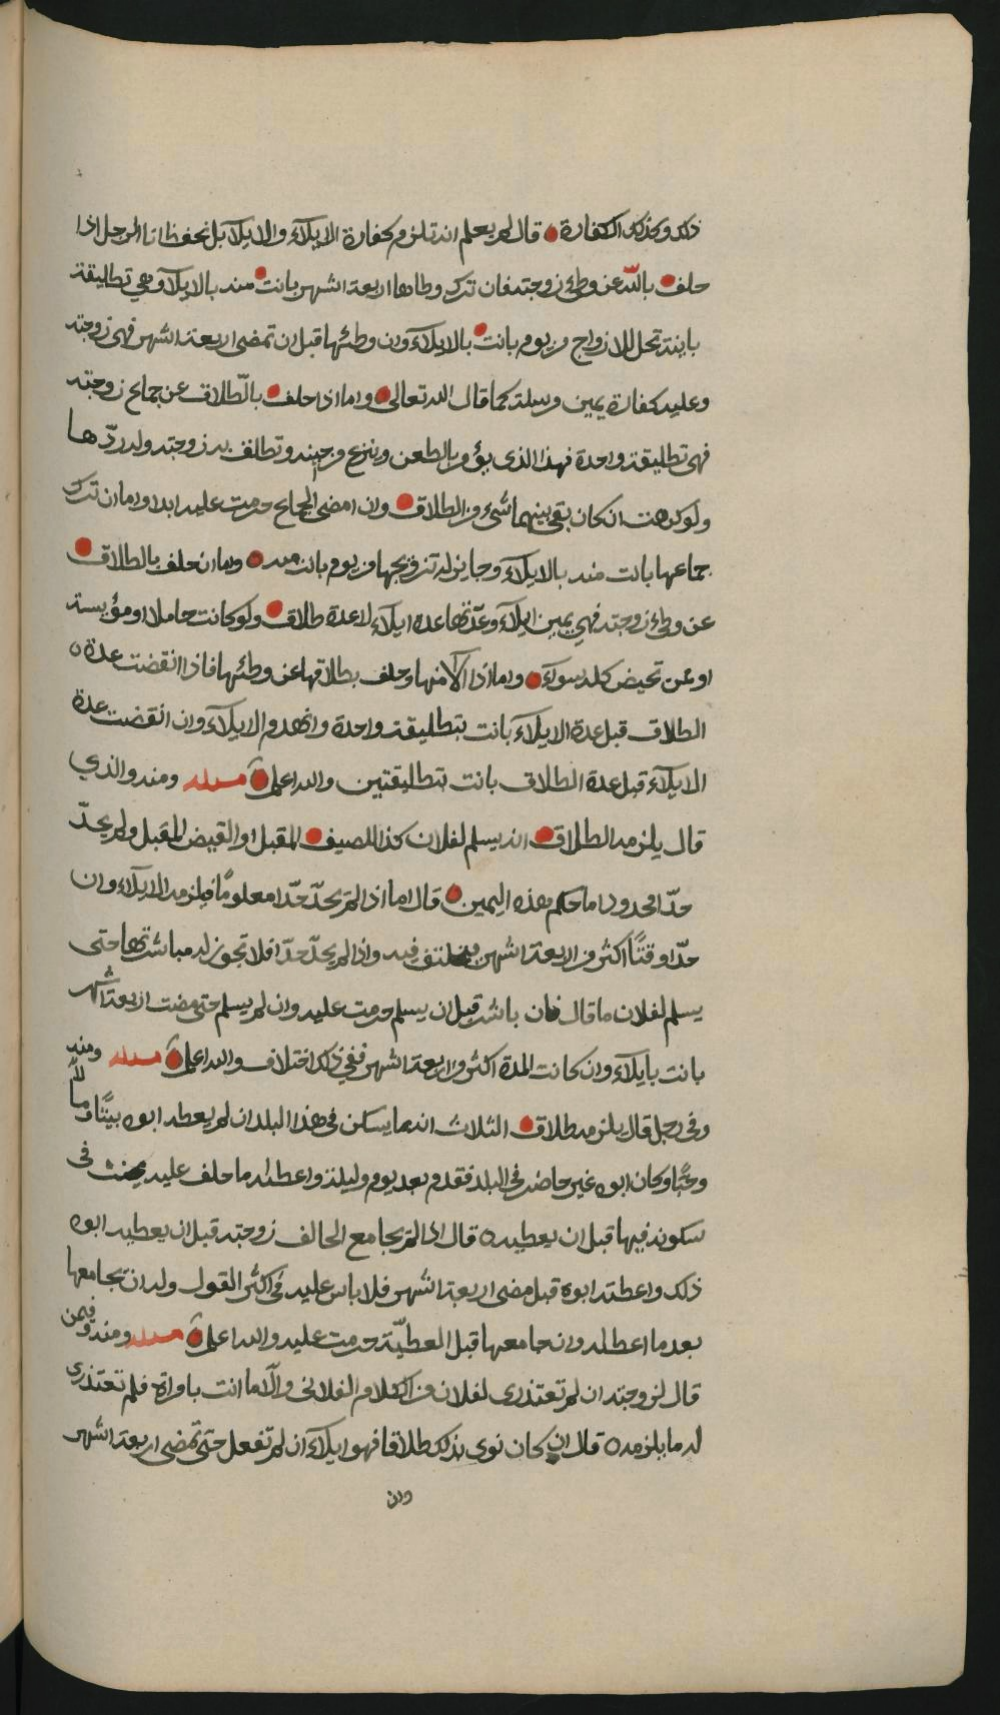 ذلك وكذلك الكفارة قال لم يعلم انه تلزم كفارة الايلاء والايلاء بل نحفظ انا الرجل اذا
حلف بالله عن وطئ زوجته فان ترك وطاها اربعة اشهر بانت منه بالايلاء وهي تطليقة
باينة تحل للازواج من يوم بانت بالايلاء وان وطئها قبل ان تمضى اربعة اشهر فهى زوجته
وعليه كفارة يمين مرسلة كما قال الله تعالى واما اذا حلف بالطلاق عن جماع زوجته
فهى تطليقة واحدة فهذا الذى يؤمر بالطعن وينزع من حينه وتطلق به زوجته وله ردّها
ولو كرهت ان كان بقي بينهما شىء من الطلاق وان امضى الجماع حرمت عليه ابدا واما ان ترك
جماعها بانت منه بالايلاء وجايز له تزويجها من يوم بانت منه واما ان حلف بالطلاق
عن وطئ زوجته فهي يمين ايلاء وعدّتها عدة ايلاء لا عدة طلاق ولو كانت حاملا او مؤيسة
او عن تحيض كله سواء واما اذا الا منها وحلف بطلاقها عن وطئها فاذا انقضت عدة
الطلاق قبل عدة الايلاء بانت بتطليقة واحدة وانهدم الايلاء وان انقضت عدة
الايلاء قبل عدة الطلاق بانت بتطليقتين والله اعلم مسئلة ومنه والذي
قال يلزمه الطلاق انه يسلم لفلان كذا للصيف المقبل او القيض المقبل ولم يحدّ
حدّا محدودا ما حكم هذه اليمين قال اما اذا لم يحدّ حدّا معلومًا فيلزمه الايلاء وان
حدّ وقتًا اكثر من اربعة اشهر فيختلف فيه واذا لم يحدّ حدّا فلا تجوز له مباشرتها حتى
يسلم لفلان ما قال فان باشر قبل ان يسلم حرمت عليه وان لم يسلم حتى مضت اربعة اشهر
بانت بايلاء وان كانت المدة اكثر من اربعة اشهر ففي ذلك اختلاف والله اعلم مسئلة ومنه
وفى رجل قال يلزمه طلاق الثلاث انه ما يسكن في هذا البلد ان لم يعطه ابوه بيتًا ومالًا
وحبًّا وكان ابوه غير حاضر في البلد فقدم بعد يوم وليلة واعطاه ما حلف عليه يحنث فى
سكونه فيها قبل ان يعطيه قال اذا لم يجامع الحالف زوجته قبل ان يعطيه ابوه
ذلك واعطاه ابوه قبل مضى اربعة اشهر فلا باس عليه في اكثر القول وله ان يجامعها
بعد ما اعطاه وان جامعها قبل العطيّة حرمت عليه والله اعلم مسئلة ومنه وفيمن
قال لزوجته ان لم تعتذرى لفلان من الكلام الفلانى والّا ما انت بامراة فلم تعتذرى
له ما يلزمه قال ان كان نوى بذلك طلاقا فهو ايلاء ان لم تفعل حتى تمضى اربعة اشهر
وان